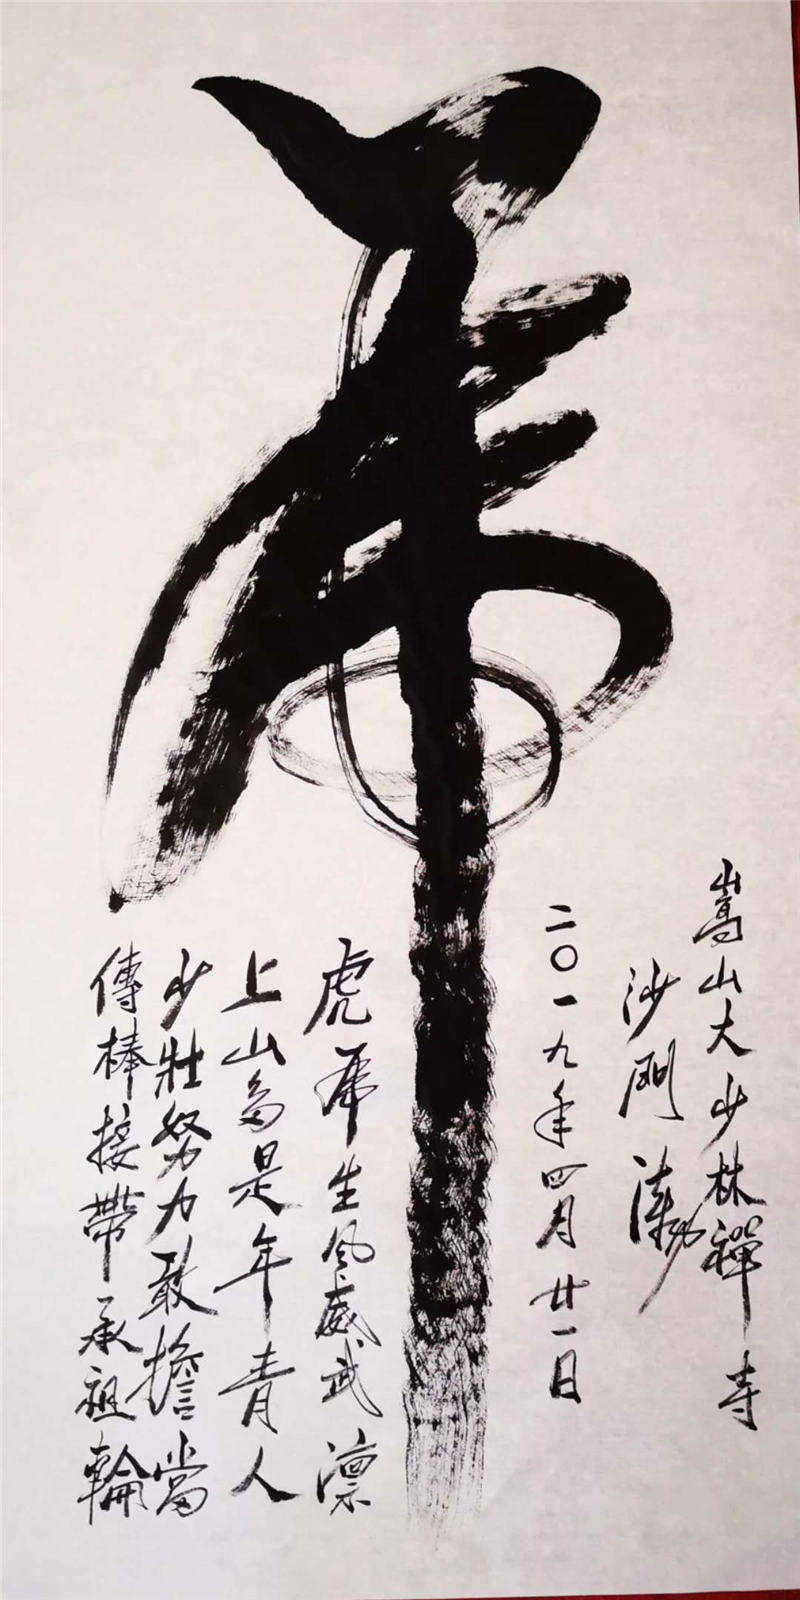 嵩山大少林禪寺
沙門
二〇一九年四月廿一日
虎
虎虎生风威武凛
上山多是年青人
少壯努力敢擔當
傳棒接帶承祖輪